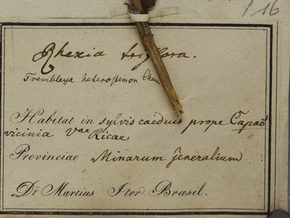 116
Rhexia triflora.
Trembleya heterostemon
Habitat in sylvis caeduis prope Capaò
vicinia Vae Ricae
Provinciae Minarum Generalium
Dr Martius Iter Brasil.